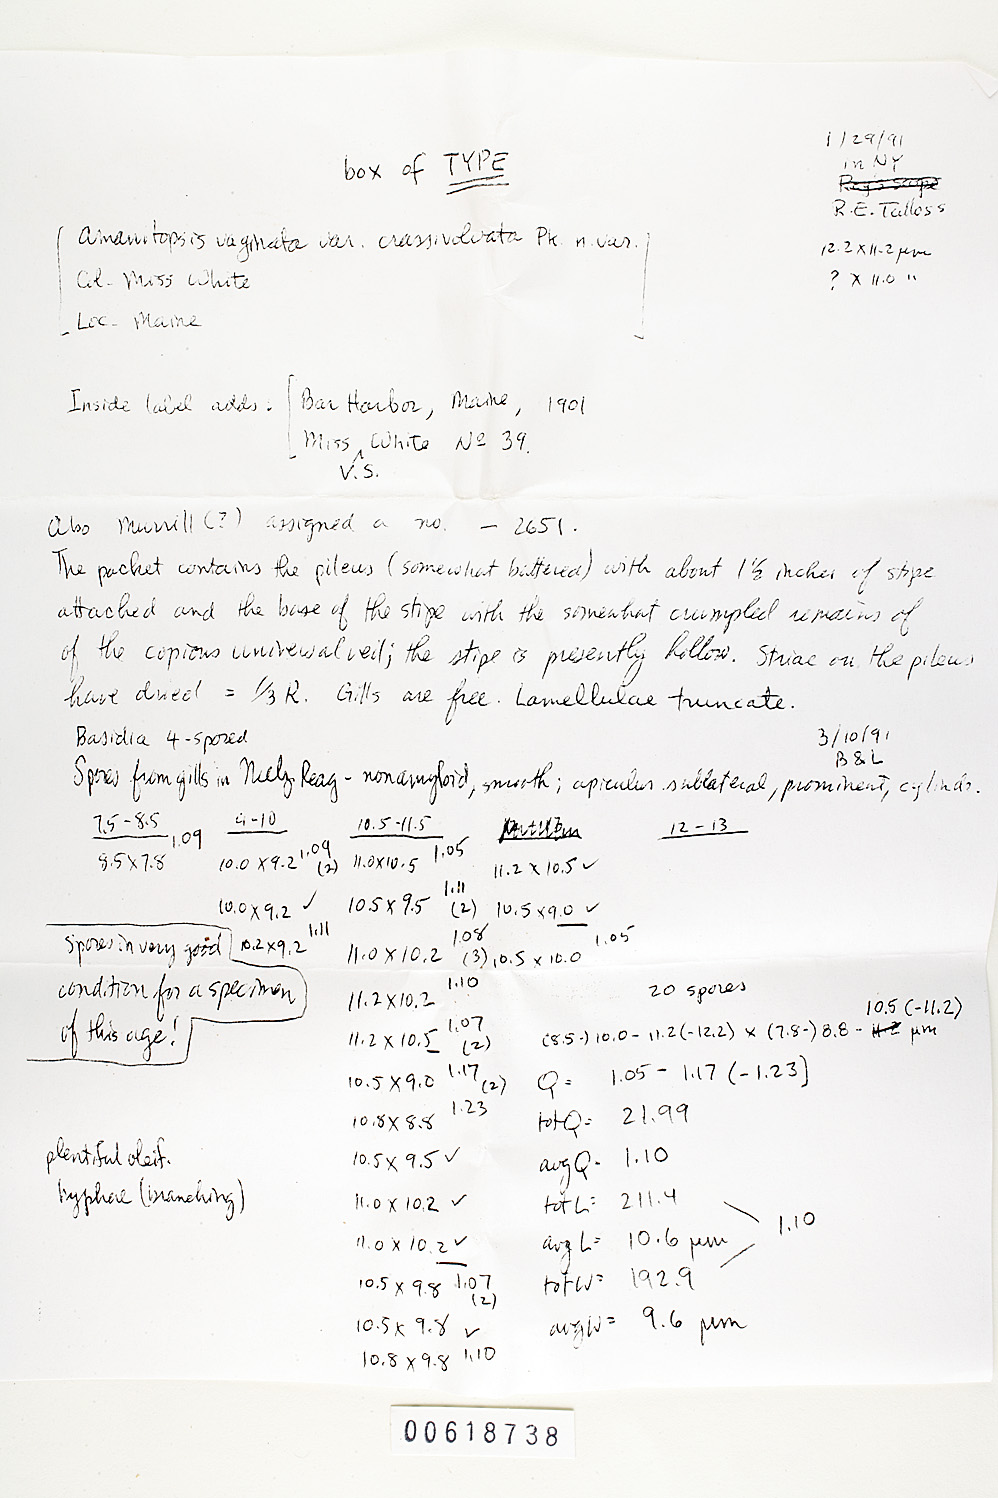 1/29/91
in NY
Ray's scope
R.E. Tulloss
box of TYPE
12.2 x 11.2 µm
? x 11.0 "
[Amanitopsis vaginata var. crassivolvata Pk. n. var.
Col- Miss White
Loc- Maine]
Inside label adds: [Bar Harbor, Maine, 1901
Miss White Nº 39.
V.S.
Also Murrill (?) assigned a no. — 2651.
The packet contains the pileus (somewhat battered) with about 1½ inches of stipe
attached and the base of the stipe with the somewhat crumpled remains of
of the copious universal veil; the stipe is presently hollow. Striae on the pileus
have dried = 1/3 R. Gills are free. Lamellulae truncate.
Basidia 4-spored
3/10/91
B & L
Spores from gills in Melz. Reag - nonamyloid, smooth; apiculus sublateral, prominent, cylindr.
7.5-8.5 9-10 10.5-11.5 12-13
8.5x7.8 1.09 10.0x9.2 1.09 (2) 11.0x10.5 1.05 11.2x10.5 ✓
10.0x9.2 ✓ 10.5x9.5 1.11 (2) 10.5x9.0 ✓
10.2x9.2 1.11 11.0x10.2 1.08 (3) 10.5x10.0 1.05
Spores in very good
condition for a specimen
of this age!
11.2x10.2 1.10
11.2x10.5 1.07 (2)
10.5x9.0 1.17 (2)
10.8x8.8 1.23
10.5x9.5 ✓
11.0x10.2 ✓
11.0x10.2 ✓
10.5x9.8 1.07 (2)
10.5x9.8 ✓
10.8x9.8 1.10
20 spores
10.5 (-11.2)
(8.5-) 10.0 - 11.2 (-12.2) x (7.8-) 8.8 - 11.2 µm
Q = 1.05 - 1.17 (-1.23)
tot Q = 21.99
avg Q = 1.10
tot L = 211.4
avg L = 10.6 µm
1.10
tot W = 192.9
avg W = 9.6 µm
plentiful oleif.
hyphae (branching)
00618738